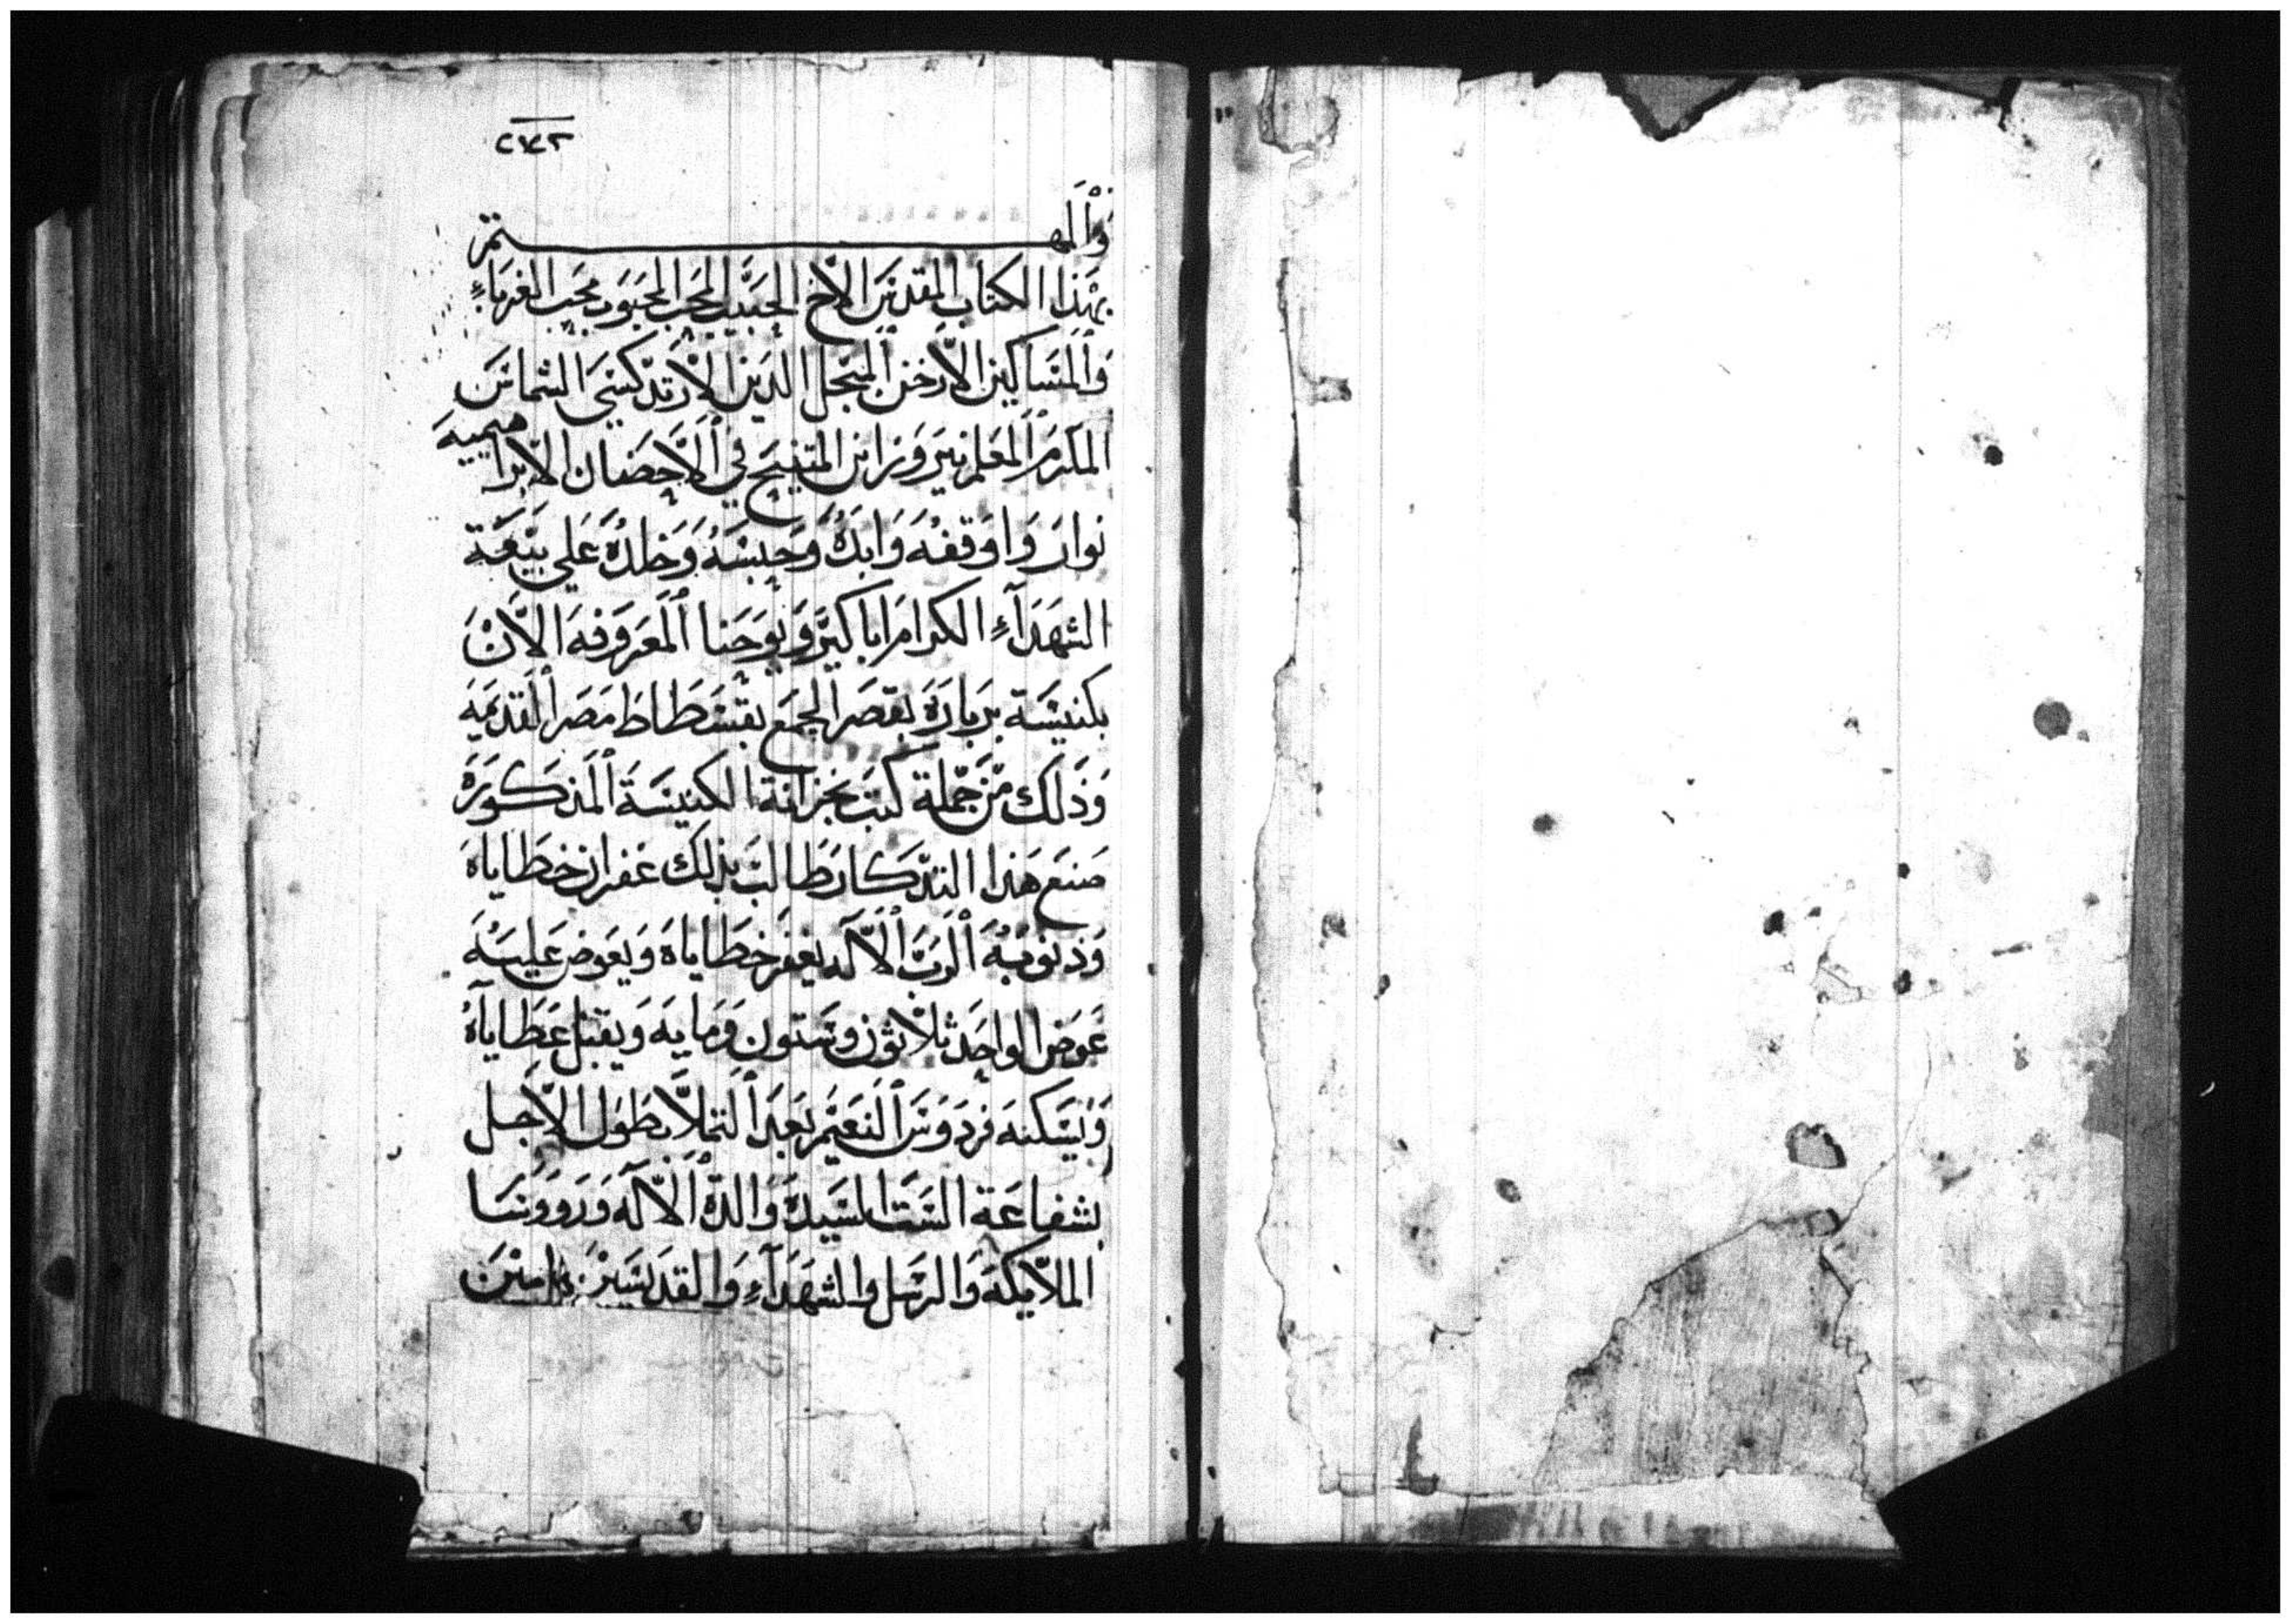 ٢٧٢
والمهتم
بهذا الكتاب المقدس الاخ الحبيب المحب المحبوب محب الغرباء
والمساكين الارخن المبجل الدين الارتدكسي الشماس
المكرم المعلم نيروز ابن المتنيح في الاحضان الابراهيمية
نوار واوقفه وابده وحبسه وخلده علي بيعة
الشهداء الكرام اباكير ويوحنا المعروفه الان
بكنيسة بربارة بقصر الجمع بفسطاط مصر القديمه
وذلك من جملة كتب بخزانة الكنيسة المذكورة
صنع هذا التدكار طالب بذلك غفران خطاياه
وذنوبه الرب الاله يغفر خطاياه ويعوض عليه
عوض الواحد ثلاثون وستون ومايه ويقبل عطاياه
ويسكنه فردوس النعيم بعد التملا بطول الاجل
بشفاعة الست السيدة والدة الاله وروونسا
الملايكه والرسل والشهداء والقديسين امين